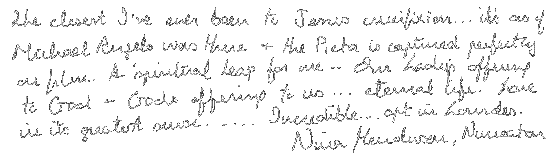 The closest I've ever been to Jesus crucifixion... it's as if
Michael Angelo was there + the Pieta is captured perfectly
on film. A spiritual leap for me -- Our Lady's offering
to God - God's offering to us... eternal life. Love
in its greatest sense...... Incredible... art in Lourdes.
Nina